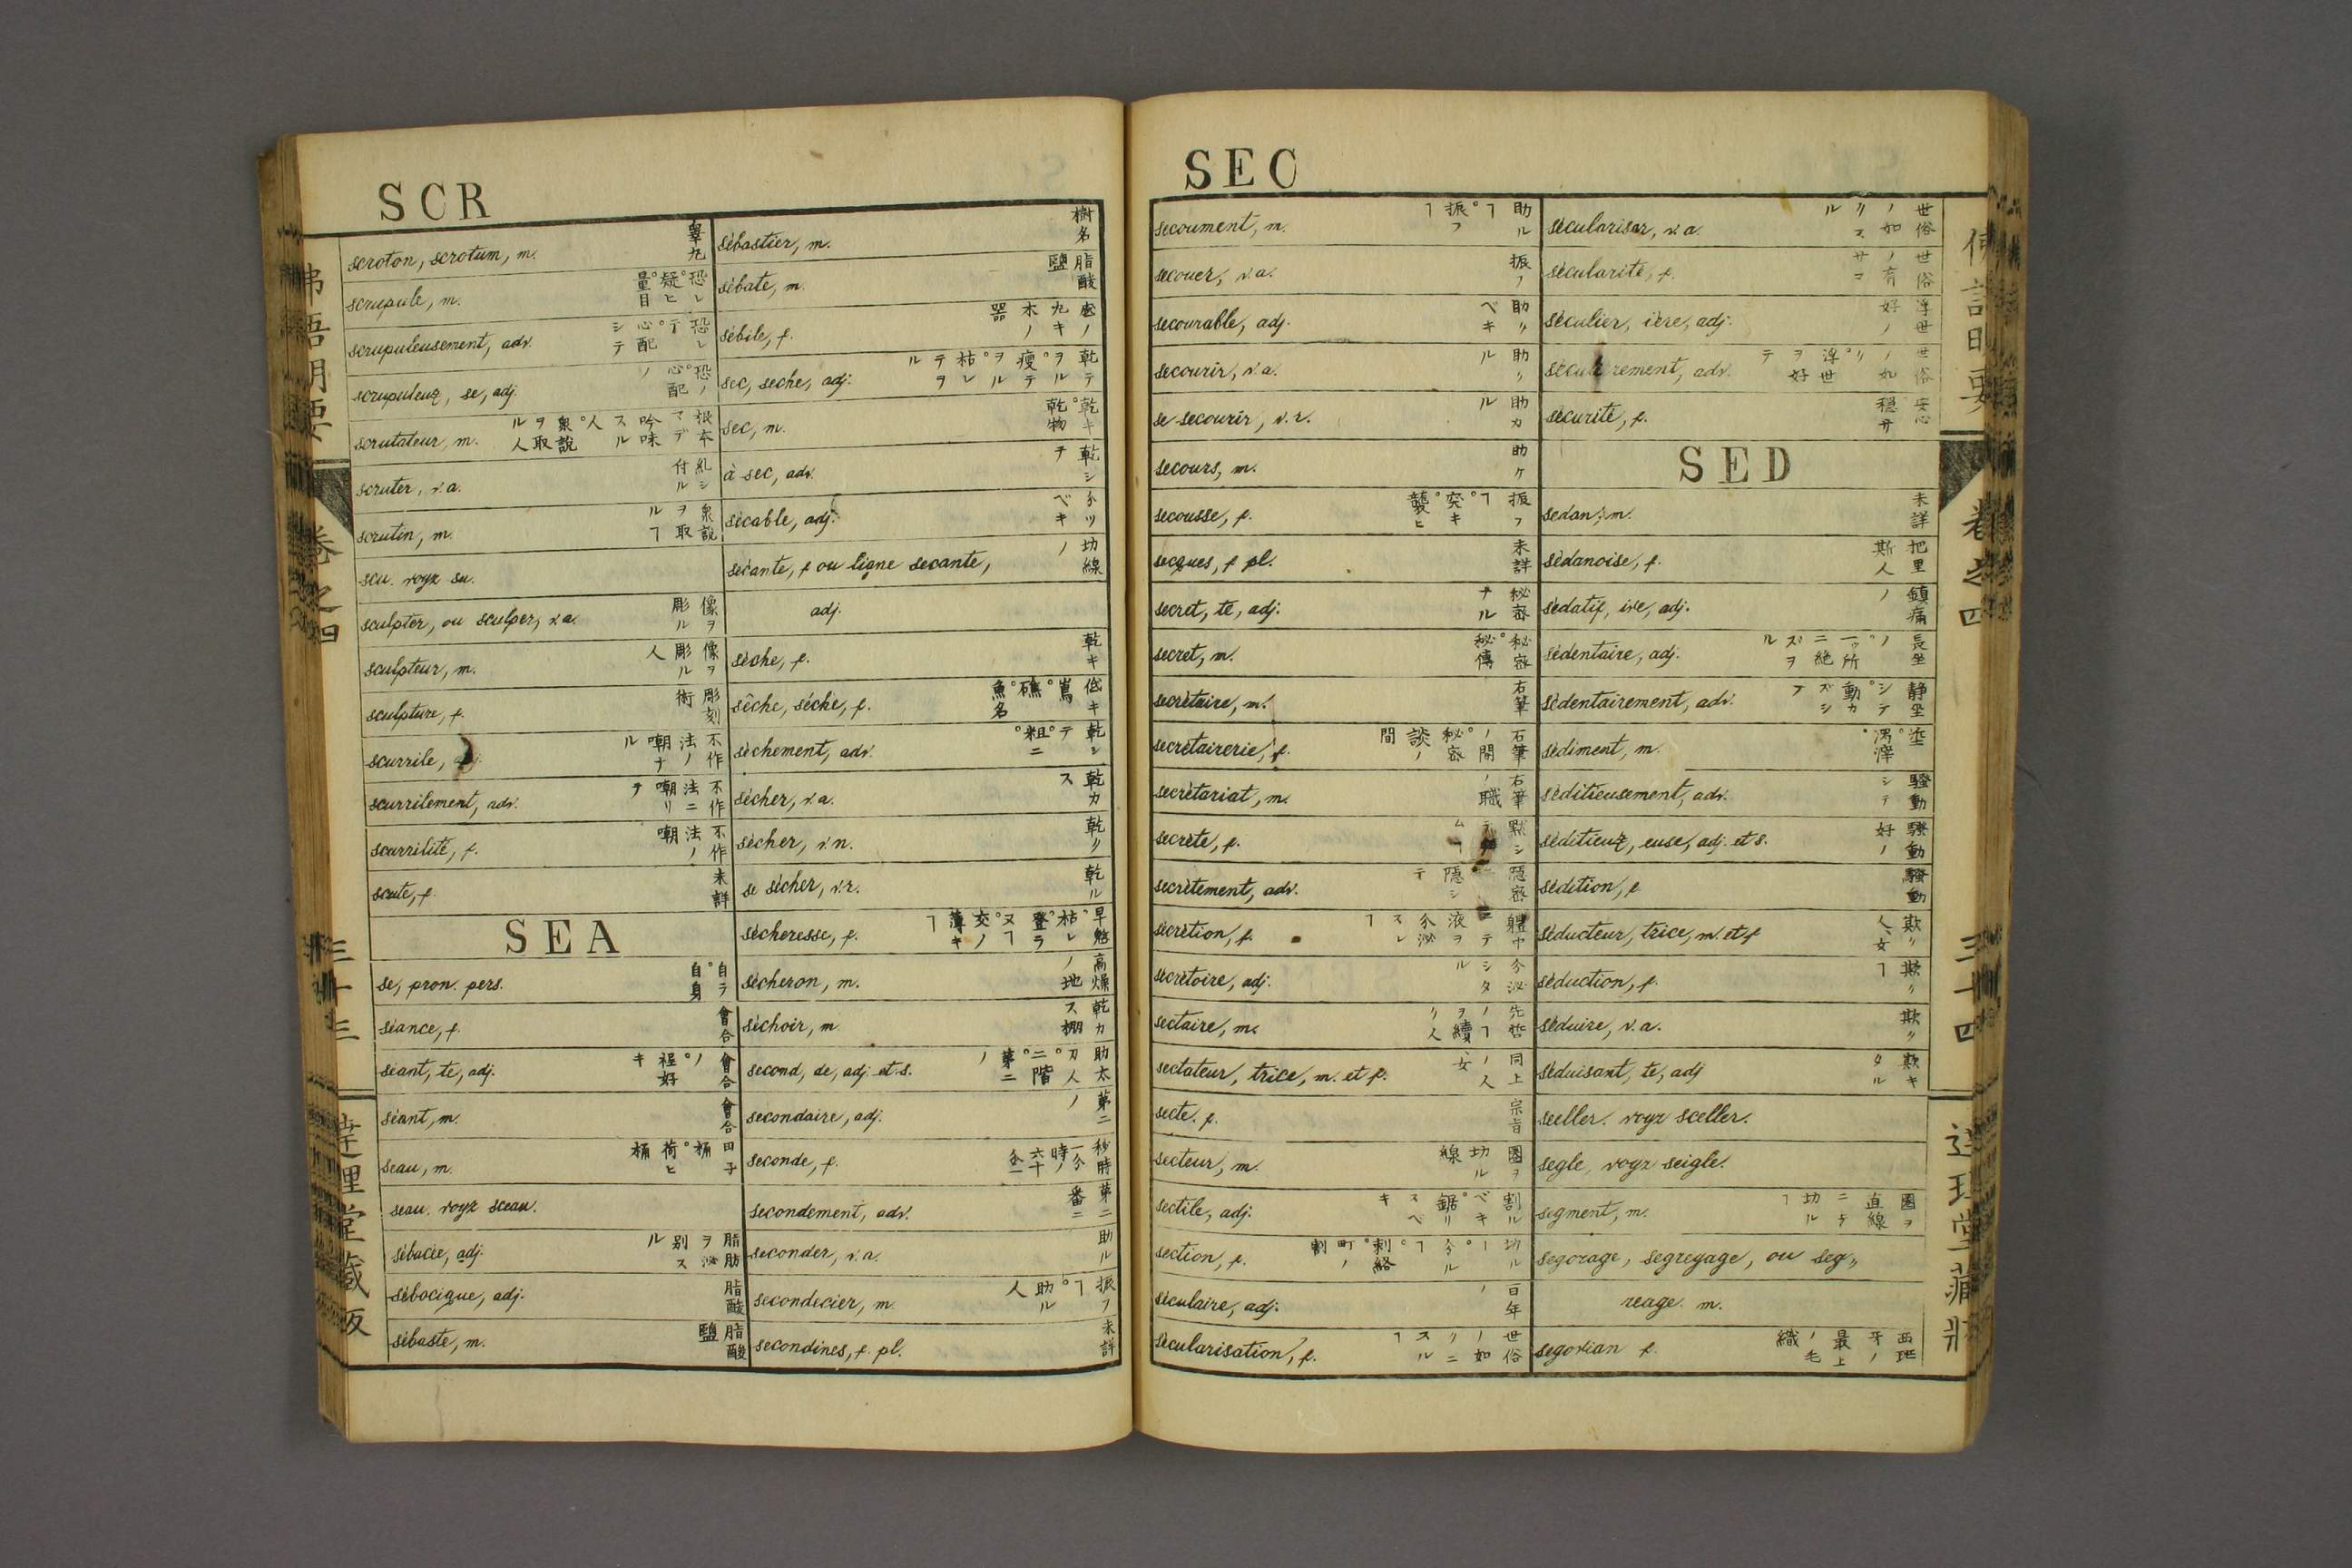 SCR
scroton, scrotum, m. 睾丸
scrupule, m. 恐レ°疑ヒ°量目
scrupuleusement, adv. 恐レテ°心配シテ
scrupuleux, se, adj. 恐ノ°心配ノ
scrutateur, m. 根本マデ吟味スル人°衆説ヲ取ル人
scruter, v.a. 糺シ付ル
scrutin, m. 衆説ヲ取ルヿ
scu. voyz su.
sculpter, ou sculper, v.a. 像ヲ彫ル
sculpteur, m. 像ヲ彫ル人
sculpture, f. 彫刻術
scurrile, 不作法ノ嘲ナル
scurrilement, adv. 不作法ニ嘲リテ
scurrilité, f. 不作法ノ嘲
scute, f. 未詳
SEA
se, pron. pers. 自ラ°自身
séance, f. 會合
séant, te, adj. 會合ノ°程好キ
séant, m. 會合
seau, m. 田子桶°荷ヒ桶
seau. voyz sceau.
sébacée, adj. 脂肪ヲ泌別スル
sébacique, adj. 脂酸
sébaste, m. 脂酸鹽
sébastier, m. 樹名
sébate, m. 脂酸鹽
sébile, f. 丸キ木ノ器
sec, seche, adj. 乾テヲル°瘦テヲル°枯レテヲル
sec, m. 乾キ°乾物
à sec, adv. 乾シテ
sécable, adj. 分ツベキ
sécante, f. ou ligne secante, 切線ノ
adj.
sèche, f. 乾キ
sêche, séche, f. 低キ嶌°礁°魚名
sèchement, adv. 乾シテ°粗ニ°
sécher, v.a. 乾カス
sécher, v.n. 乾ク
se sécher, v.r. 乾ル
sécheresse, f. 旱魃°枯レ
sécheron, m. 高燥ノ地
séchoir, m. 乾カス棚
second, de, adj. et s. 助太刀人°二階°第二ノ
secondaire, adj. 第二ノ
seconde, f. 秘時一分時ノ六十分一
secondement, adv. 第二番ニ
seconder, v.a. 助ル
secondicier, m. 振フヿ°助ル人
secondines, f. pl. 未詳
SEC
secoument, m. 助ルヿ°振フヿ
secouer, v.a. 振フ
secourable, adj. 助クベキ
secourir, v.a. 助クル
se secourir, v.r. 助カル
secours, m. 助ケ
secousse, f. 振フヿ°突キ°襲ヒ
secques, f. pl. 未詳
secret, te, adj. 秘密ナル
secret, m. 秘密°秘傳
secrétaire, m. 右筆
secrétairerie, f. 右筆ノ間°秘密ノ談間
secrétariat, m. 右筆ノ職
secrète, f.
secrètement, adv. 隱密ニ隱シテ
secrétion, f. 體中ニテ液ヲ分泌スルヿ
secrétoire, adj. 分泌シタル
sectaire, m. 先哲ノヿヲ續ク人
sectateur, trice, m. et f. 同上ノ人、女
secte. f. 宗旨
secteur, m. 圏ヲ切ル線
sectile, adj. 割ルベキ°鋸リスベキ
section, f. 切ルヿ°分ルヿ°刺絡°町ノ割
séculaire, adj. 百年ノ
sécularisation, f. 世俗ノ如クニスルヿ
séculariser, v.a. 世俗ノ如クスル
sécularité, f. 世俗ノ
séculier, ière, adj. 浮世好ノ
séculièrement, adv. 世俗ノ如ク°浮世ヲ好テ
sécurité, f. 安心 穏サ
SED
sedan, m. 未詳
sédanoise, f. 把里斯人
sédatif, ive, adj. 鎮痛ノ
sédentaire, adj. 長坐ノ°一ツ所ニ絶ズヲル
sédentairement, adv. 静坐シテ°動カズシテ
sédiment, m. 垽°滓
séditieusement, adv. 騒動シテ
séditieux, euse, adj. et s. 騒動好ノ
sédition, f. 騒動
séducteur, trice, m. et f. 欺ク人、女
séduction, f. 欺クヿ
séduire, v.a. 欺ク
séduisant, te, adj. 欺キタル
seeller. voyz sceller.
segle, voyz seigle.
segment, m. 圏ヲ直線ニテ切ルヿ
segorage, segreyage, ou seg〃
reage. m.
segovian f. 西班牙ノ最上ノ毛織
佛語明要 卷之四 三十三 達理堂蔵版
佛語明要 卷之四 三十四 達理堂蔵版